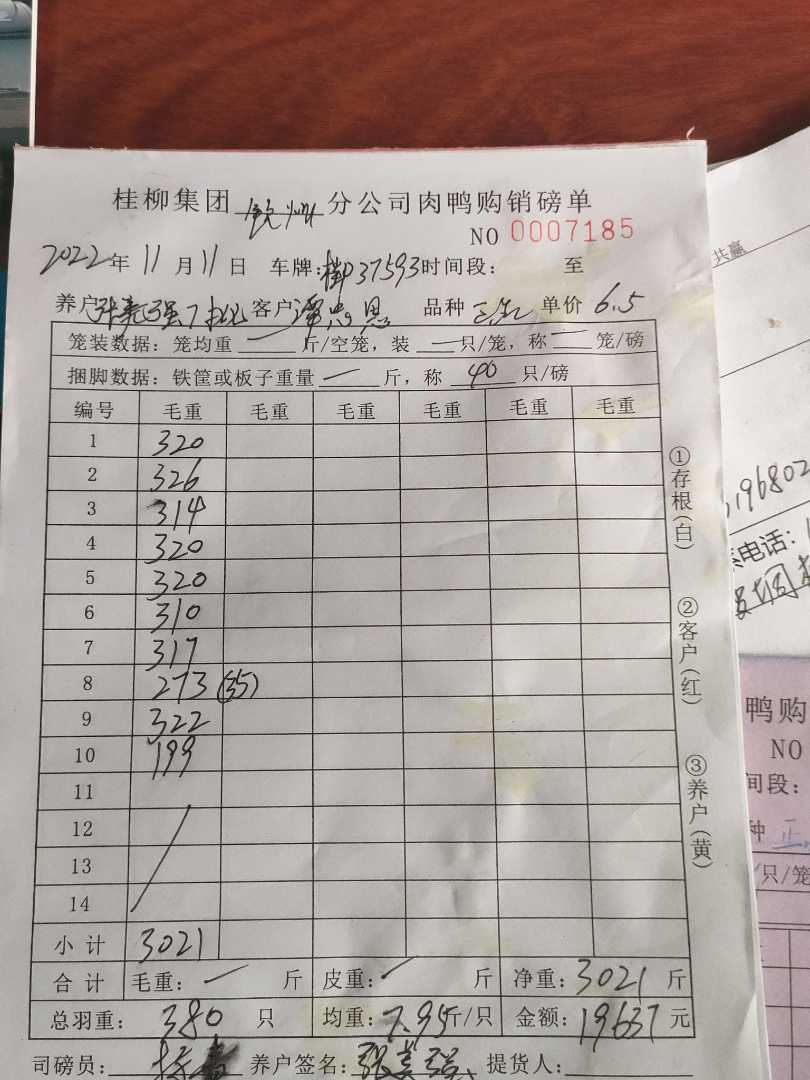 桂柳集团 钦州 分公司肉鸭购销磅单
NO 0007185
2022年 11月 11日 车牌:桂D37593 时间段: 至
养户 客户 品种 单价 6.5
笼装数据: 笼均重 一 斤/空笼, 装 一 只/笼, 称 一 笼/磅
捆脚数据: 铁筐或板子重量 一 斤, 称 40 只/磅
编号 毛重 毛重 毛重 毛重 毛重 毛重
1 320
2 326
3 314
4 320
5 320
6 310
7 317
8 273 (35)
9 322
10 199
11
12
13
14
小计 3021
合计 毛重: 一 斤 皮重: 一 斤 净重: 3021 斤
总羽重: 380 只 均重: 7.95 斤/只 金额: 19637 元
司磅员: 养户签名: 提货人:
①存根(白)
②客户(红)
③养户(黄)
共赢
196802
电话:
鸭购
NO
间段:
种 正
只/笼